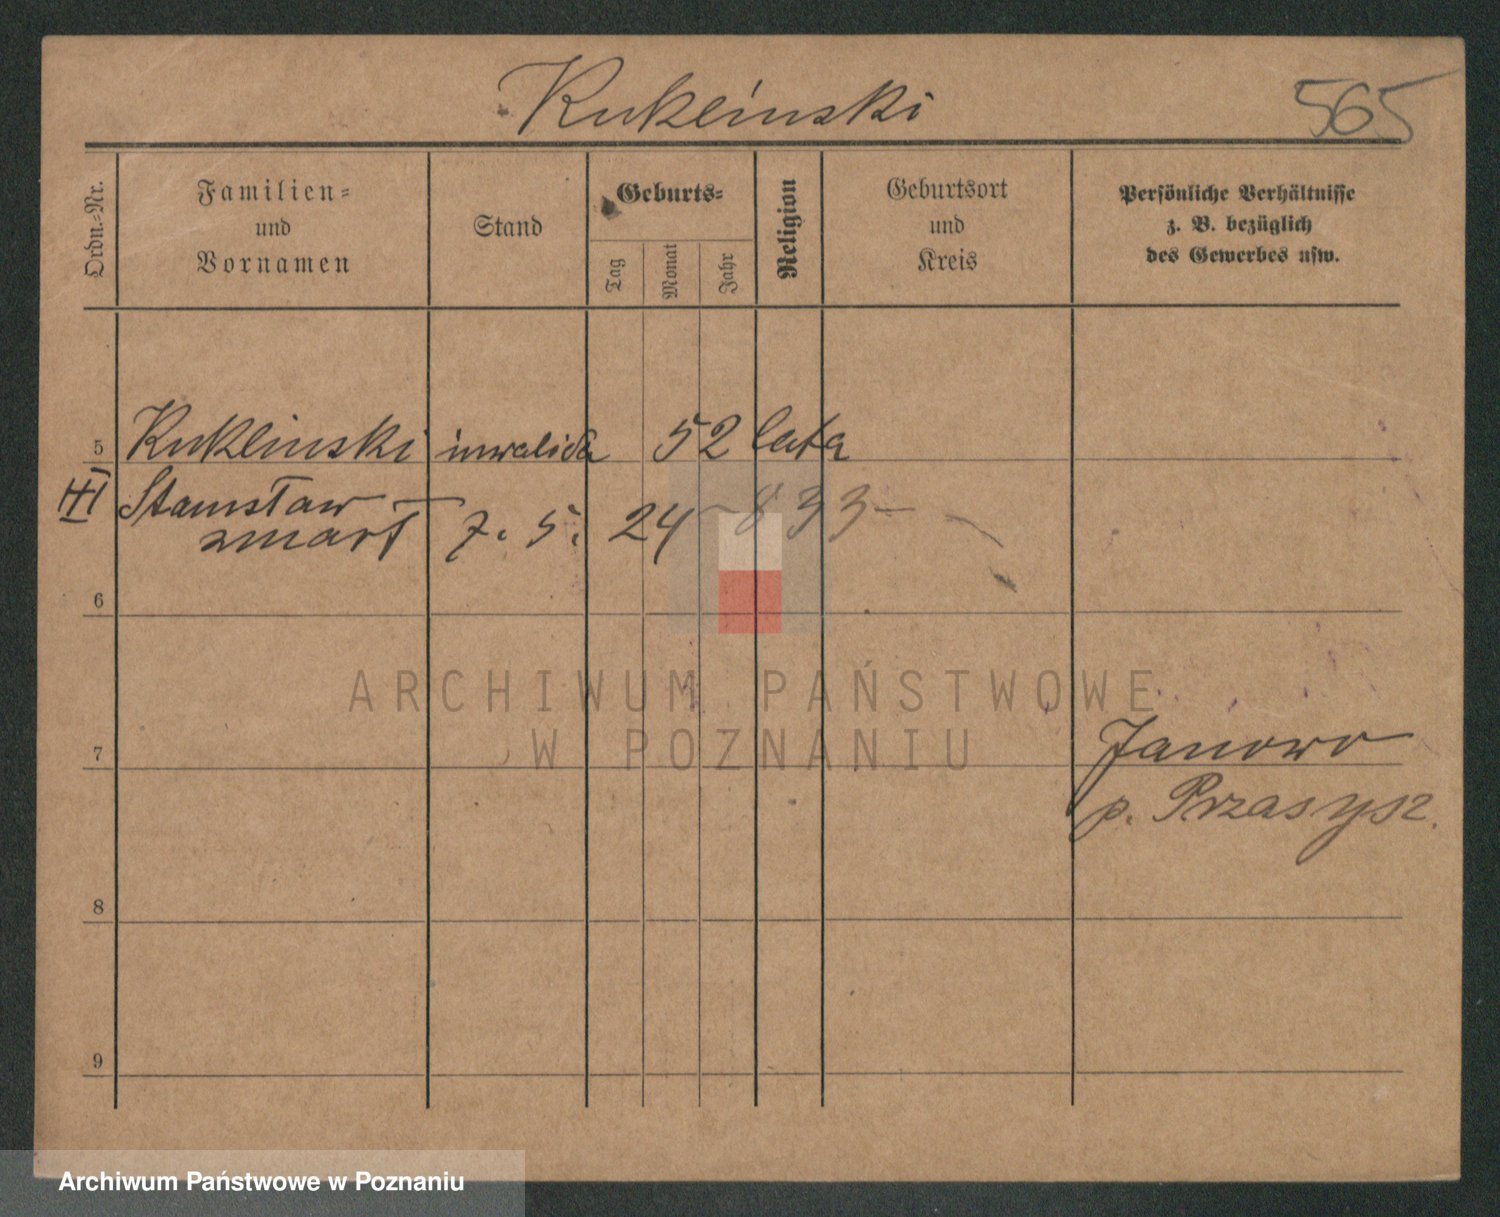 Kukliński 565
Ordn.-Nr.
Familien-
und
Vornamen
Stand
Geburts-
Tag
Monat
Jahr
Religion
Geburtsort
und
Kreis
Persönliche Verhältnisse
z. B. bezüglich
des Gewerbes usw.
5 Kuklinski inwalida 52 lata
III Stanisław
zmarł 7. 5. 24 - 833 -
6
ARCHIWUM PAŃSTWOWE
W POZNANIU
7 Janowo
p. Przasysz.
8
9
Archiwum Państwowe w Poznaniu